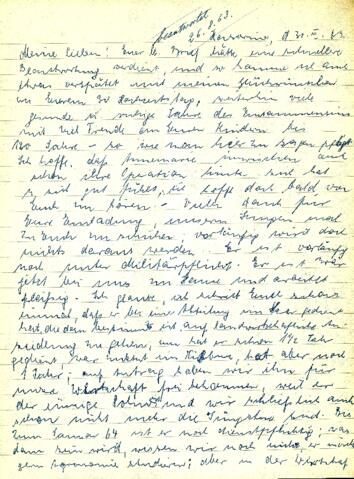 beantwortet
26. 63.
d 31. 63
Meine Lieben! Euer lb. Brief hätte eine schnellere
Beantwortung verdient, und so komme ich erst
etwas verspätet mit meinen Glückwünschen
zu Eurem Geburtstag, weiterhin viele
gesunde Jahre des Zusammenseins
mit viel Freude an Euren Kindern bis
120 Jahre - so wie man hier zu sagen pflegt
Ich hoffe, dass inzwischen auch
schon ihre Operation hinter sich hat
es sich gut fühlt, ich hoffe doch bald von
Euch zu hören. - Vielen Dank für
Eure Einladung, unseren Jungen mal
zu Euch zu schicken; vorläufig wird doch
nichts daraus werden - Er ist vorläufig
noch unter Militärpflicht. Er ist zwar
jetzt bei uns zu Hause und arbeitet
fleissig. Ich glaube, ich schrieb Euch schon
einmal, dass er bei eine Abteilung im Heer gedient
hat, die dann bestimmt ist auf landwirtschaftliche An-
siedlung zu gehen, nun hat er schon 1½ Jahr
gedient, zwar nicht im Kibbuz, hat aber noch
1 Jahr; auf Antrag haben wir ihn für
unsere Wirtschaft frei bekommen, weil er
der einzige Sohn und wir schliesslich auch
schon nicht mehr die Jüngsten sind. Bis
zum Januar 64 ist er noch dienstpflichtig; was
dann sein wird, wissen wir noch nicht, er möchte
gern Agronomie studieren; aber in der Wirtschaft